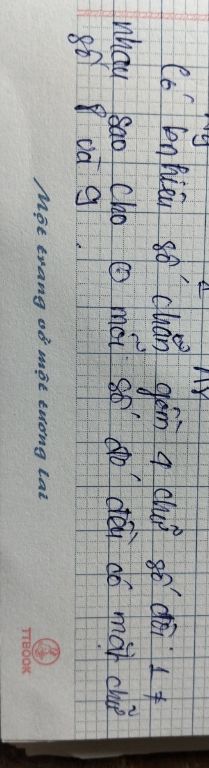 Có bn hiêu số chẵn gồm 4 chữ số đôi 1 ≠
nhau sao cho ở mỗi số đó đều có mặt chữ
số 8 và 9.
Một trang vở một tương lai
TTBOOK